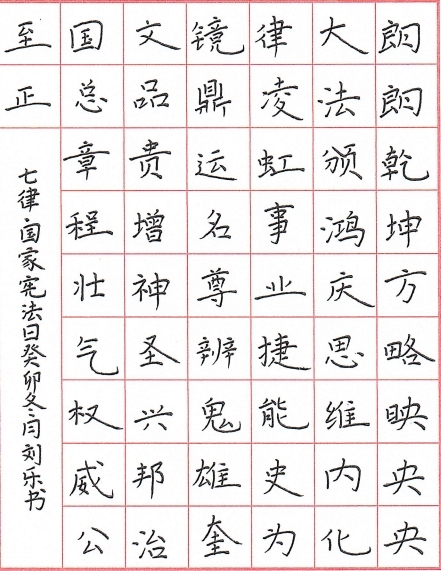 朗朗乾坤方略映央央
大法颁鸿庆思维内化
律凌虹事业捷能史为
镜鼎运名尊辨鬼雄奎
文品贵增神圣兴邦治
国总章程壮气权威公
至正
七律国家宪法日癸卯冬刘乐书